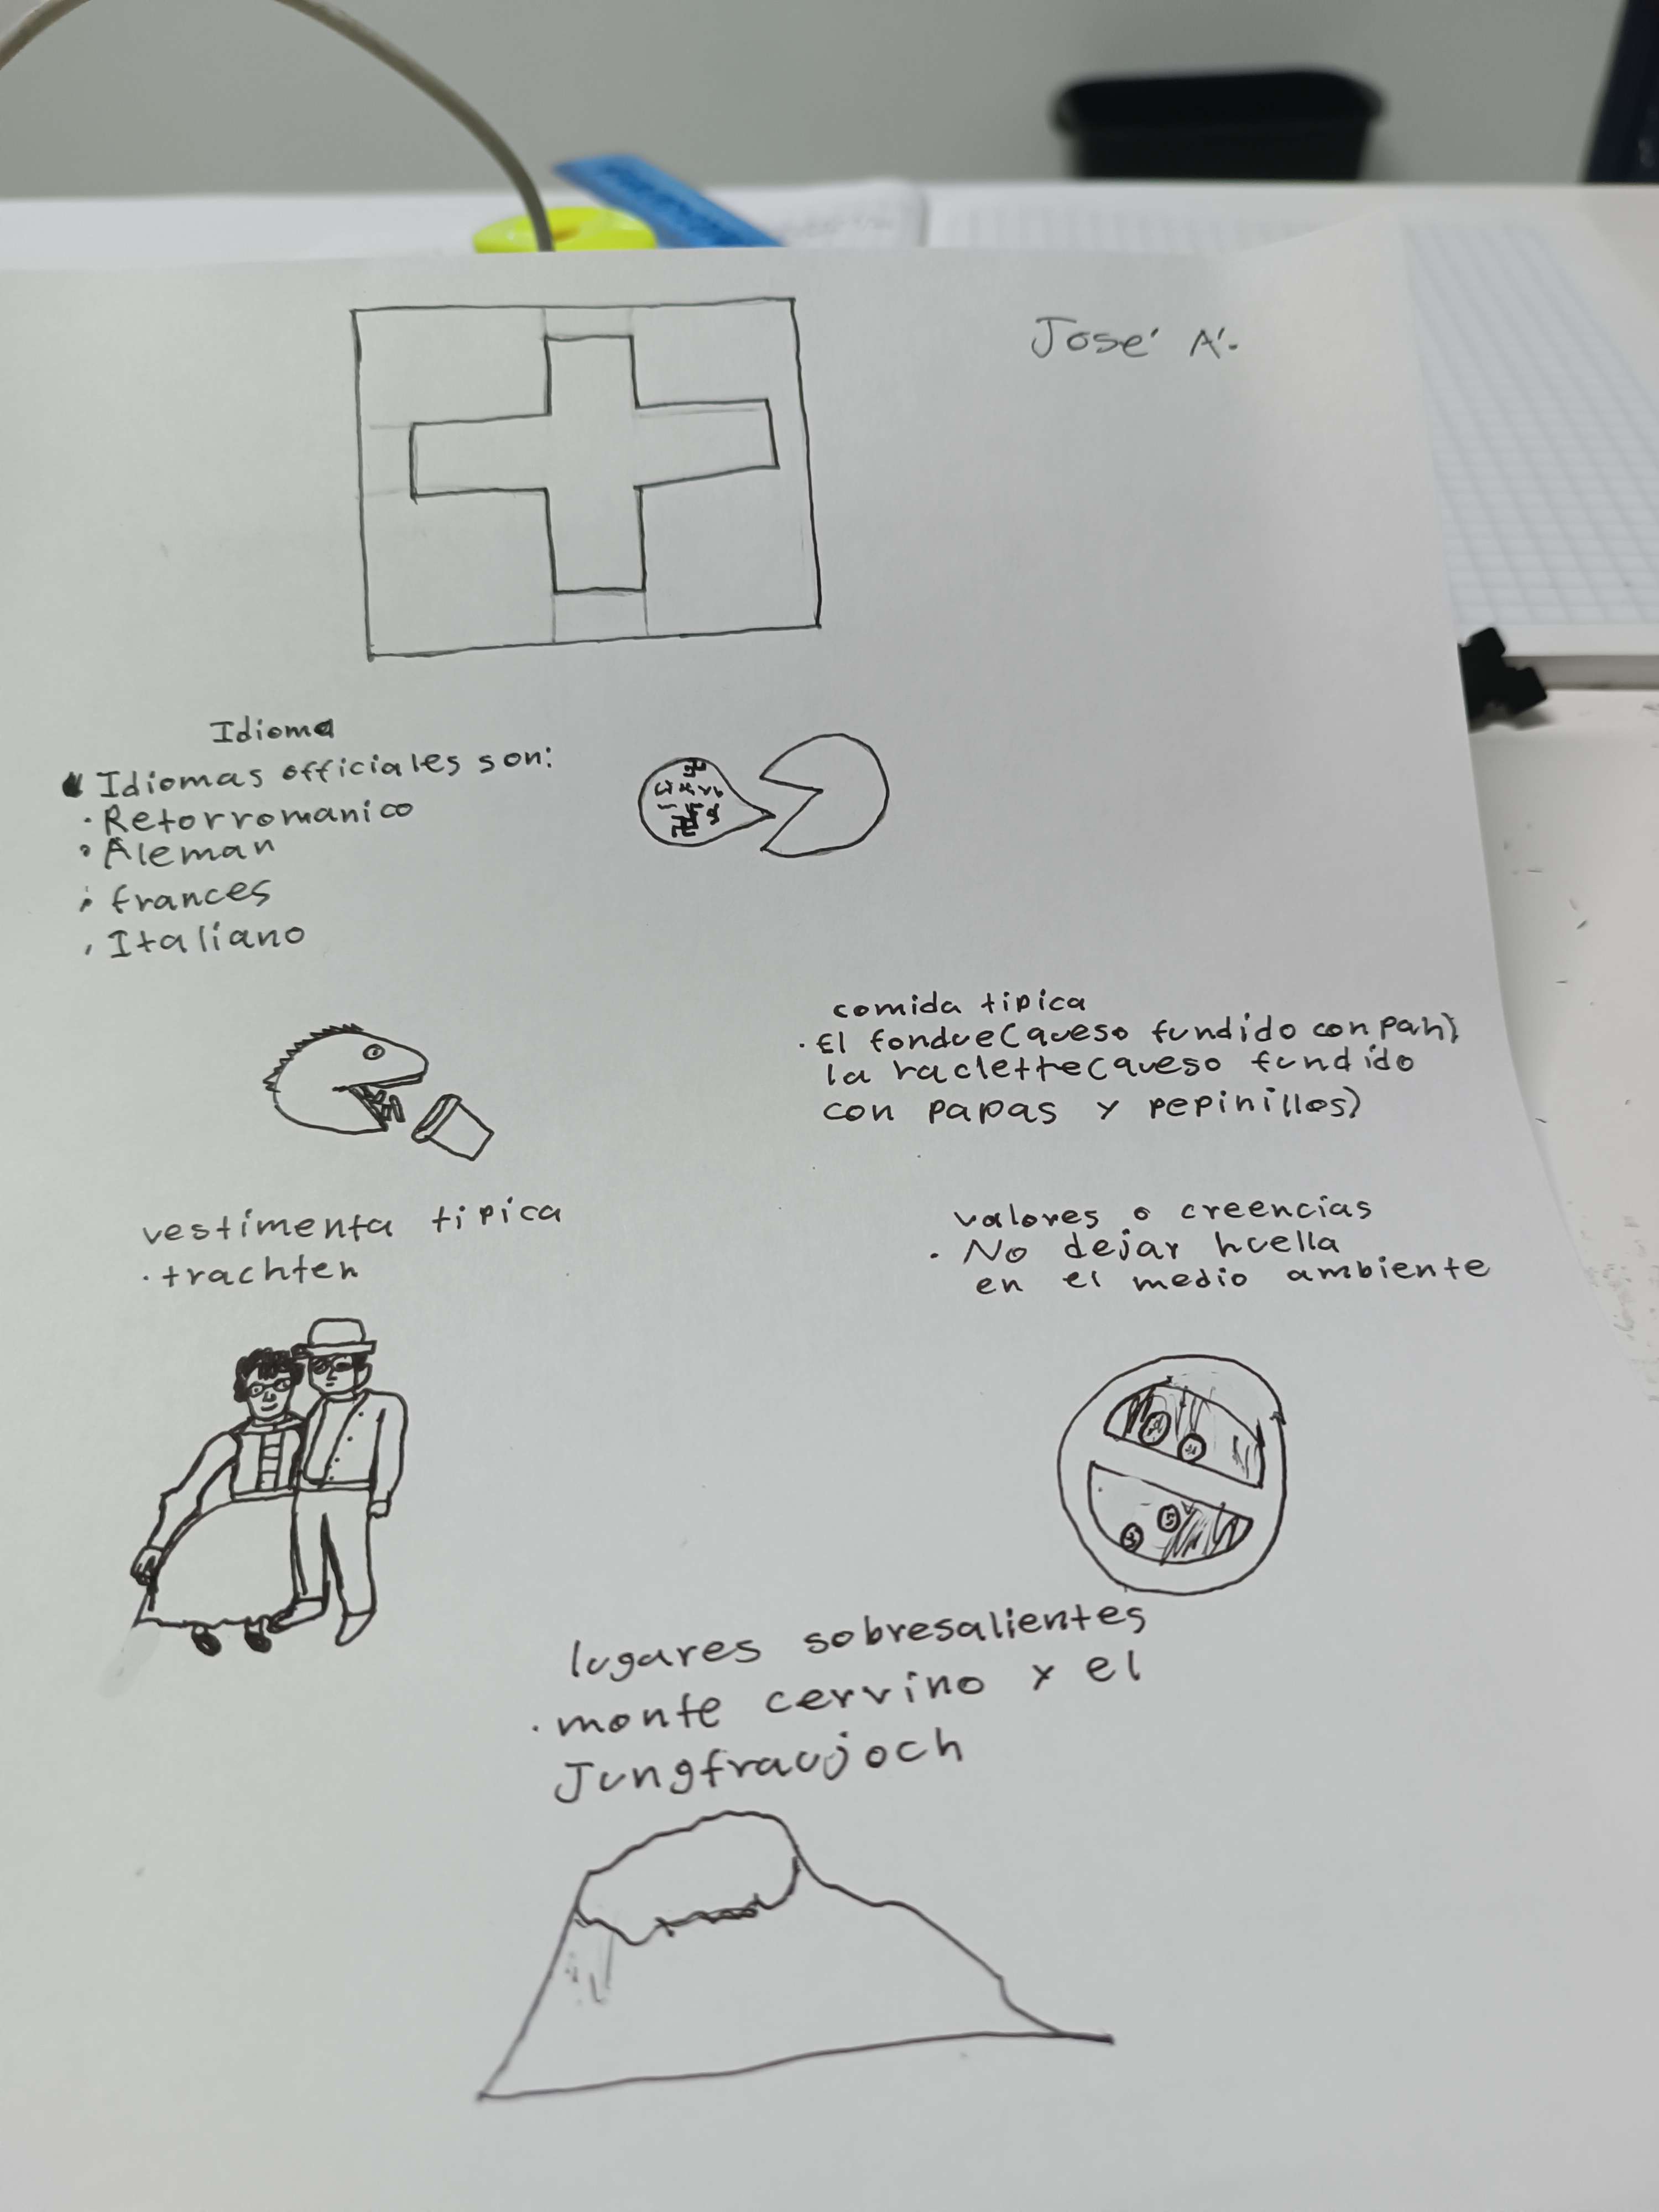 José A.
Idioma
Idiomas officiales son:
· Retorromanico
· Aleman
· frances
· Italiano
comida tipica
· El fondue(queso fundido con pan)
la raclette(queso fundido
con papas y pepinillos)
vestimenta tipica
· trachten
valores o creencias
· No dejar huella
en el medio ambiente
lugares sobresalientes
· monte cervino y el
Jungfraujoch